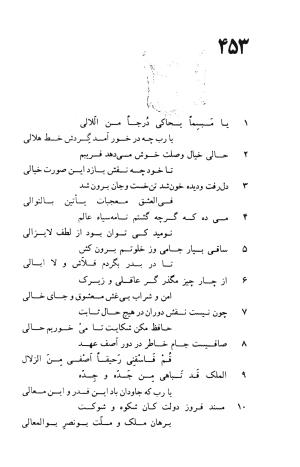 ۴۵۳
۱ یا مَبسِماً یحاکی دُرجاً مِن الّلالی
یا رب چه در خور آمد گِردش خط هلالی
۲ حالی خیال وصلت خوش می‌دهد فریبم
تا خود چه نقش بازد این صورت خیالی
۳ دل‌رفت ودیده خون‌شد تن‌خست‌وجان برون شد
فی‌العشق معجبات یأتین بالتوالی
۴ می ده که گرچه گشتم نامه‌سیاه عالم
نومید کی توان بود از لطف لایزالی
۵ ساقی بیار جامی وز خلوتم برون کش
تا در بدر بگردم قلّاش و لا ابالی
۶ از چار چیز مگذر گر عاقلی و زیرک
امن و شراب بی‌غش معشوق و جای خالی
۷ چون نیست نقش دوران در هیچ حال ثابت
حافظ مکن شکایت تا می خوریم حالی
۸ صافیست جام خاطر در دور آصف عهد
قُم فَاسقِنی رَحیقاً اَصفی مِنَ الزلال
۹ الملک قَد تَباهی مِن جَدّه و جِدّه
یا رب که جاودان باد این قدر و این معالی
۱۰ مسند فروز دولت کان شکوه و شوکت
برهان ملک و ملّت بونصر بوالمعالی